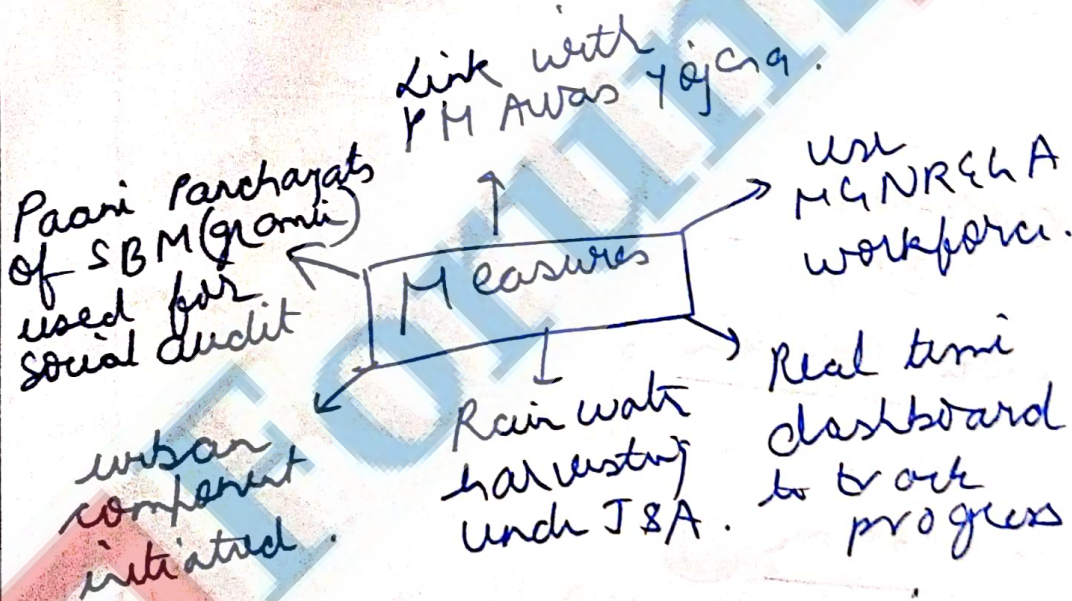 Link with
PM Awas Yojana.
Paani Panchayats
of SBM (gramin)
used for
social audit
Measures
use
MGNREGA
workforce.
urban
component
initiated.
Rain water
harvesting
under JSA.
Real time
dashboard
to track
progress
Forum